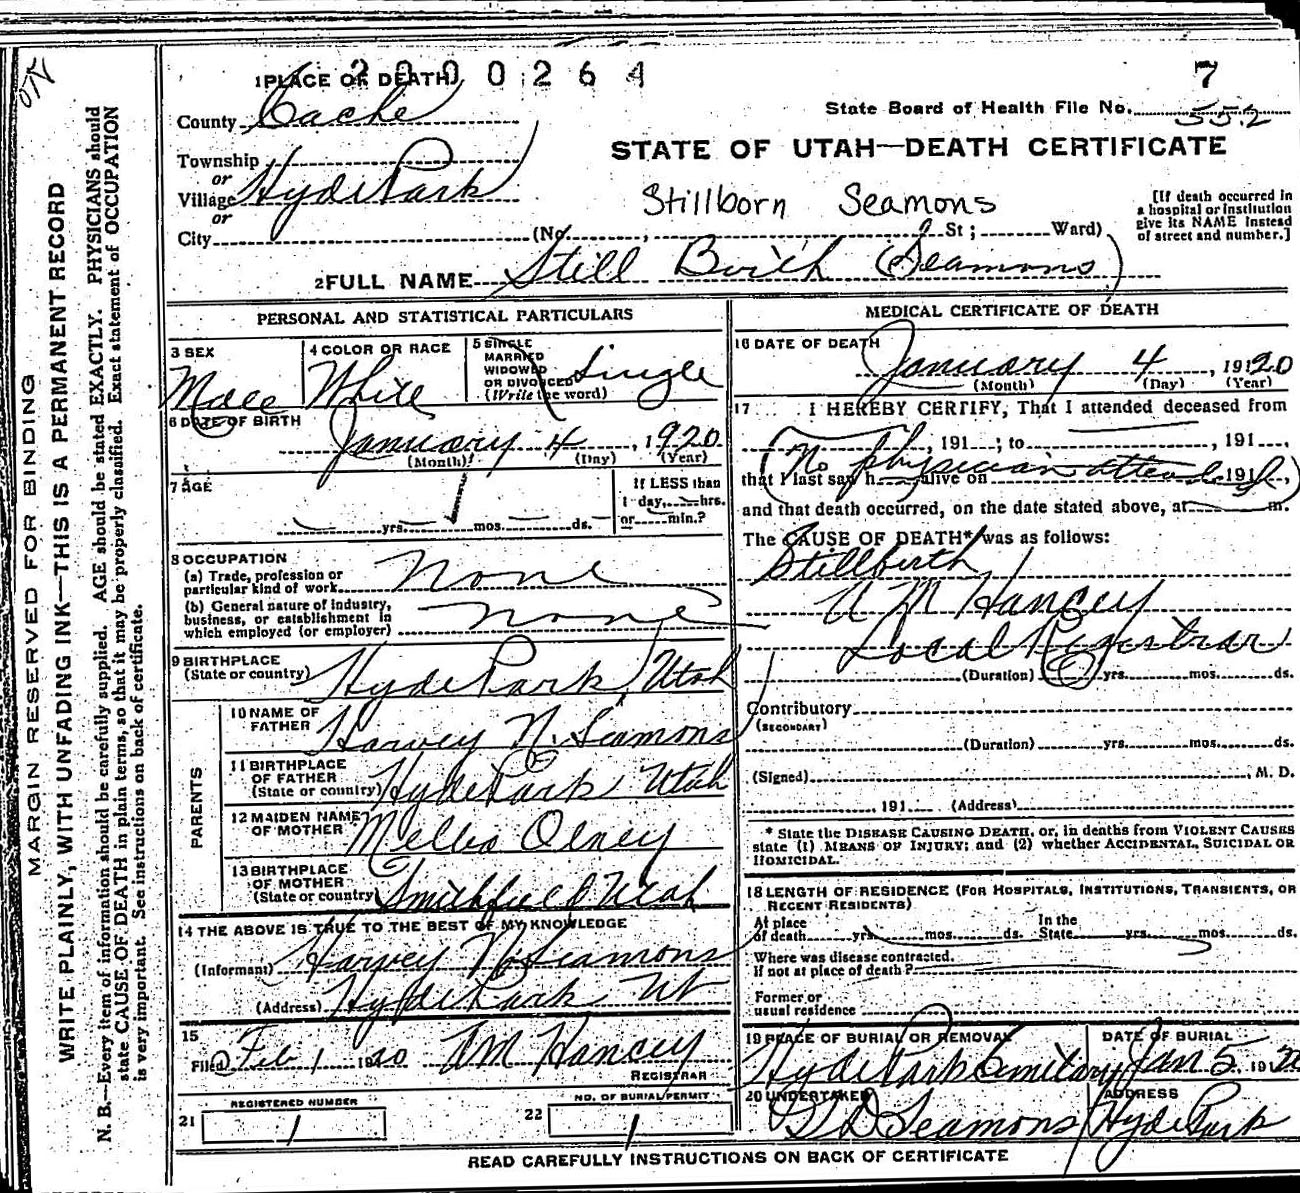 2000264
7
1 PLACE OF DEATH
State Board of Health File No. 552
County Cache
STATE OF UTAH—DEATH CERTIFICATE
Township
or
Village Hyde Park
or
Stillborn Seamons
[If death occurred in
a hospital or institution
give its NAME instead
of street and number.]
City (No. , St ; Ward)
2 FULL NAME Still Birth (Seamons)
PERSONAL AND STATISTICAL PARTICULARS
3 SEX
Male
4 COLOR OR RACE
White
5 SINGLE
MARRIED
WIDOWED
OR DIVORCED
(Write the word)
Single
6 DATE OF BIRTH
January 4, 1920
(Month) (Day) (Year)
7 AGE
yrs. mos. ds.
If LESS than
1 day, hrs.
or min.?
8 OCCUPATION
(a) Trade, profession or
particular kind of work None
(b) General nature of industry,
business, or establishment in
which employed (or employer) none
9 BIRTHPLACE
(State or country) Hyde Park, Utah
PARENTS
10 NAME OF
FATHER Harvey N. Seamons
11 BIRTHPLACE
OF FATHER
(State or country) Hyde Park Utah
12 MAIDEN NAME
OF MOTHER Olney
13 BIRTHPLACE
OF MOTHER
(State or country) Smithfield Utah
14 THE ABOVE IS TRUE TO THE BEST OF MY KNOWLEDGE
(Informant) Harvey N. Seamons
(Address) Hyde Park Ut
15
Filed Feb 1 1920 Hancey
REGISTRAR
21
REGISTERED NUMBER
1
22
NO. OF BURIAL PERMIT
1
MEDICAL CERTIFICATE OF DEATH
16 DATE OF DEATH
January 4, 1920
(Month) (Day) (Year)
17 I HEREBY CERTIFY, That I attended deceased from
, 191 ; to , 191 ,
(No physician attended)
that I last saw h alive on 191 ,
and that death occurred, on the date stated above, at m.
The CAUSE OF DEATH* was as follows:
Stillbirth
Hancey
Local Registrar
(Duration) yrs. mos. ds.
Contributory
(SECONDARY)
(Duration) yrs. mos. ds.
(Signed) M. D.
, 191 (Address)
* State the DISEASE CAUSING DEATH, or, in deaths from VIOLENT CAUSES
state (1) MEANS OF INJURY; and (2) whether ACCIDENTAL, SUICIDAL OR
HOMICIDAL.
18 LENGTH OF RESIDENCE (FOR HOSPITALS, INSTITUTIONS, TRANSIENTS, OR
RECENT RESIDENTS)
At place
of death yrs. mos. ds.
In the
State yrs. mos. ds.
Where was disease contracted,
if not at place of death?
Former or
usual residence
19 PLACE OF BURIAL OR REMOVAL
Hyde Park Cemitary
DATE OF BURIAL
Jan 5, 1920
20 UNDERTAKER
Seamons
ADDRESS
Hyde Park
READ CAREFULLY INSTRUCTIONS ON BACK OF CERTIFICATE
MARGIN RESERVED FOR BINDING
WRITE PLAINLY, WITH UNFADING INK—THIS IS A PERMANENT RECORD
N. B.—Every item of information should be carefully supplied. AGE should be stated EXACTLY. PHYSICIANS should
state CAUSE OF DEATH in plain terms, so that it may be properly classified. Exact statement of OCCUPATION
is very important. See instructions on back of certificate.